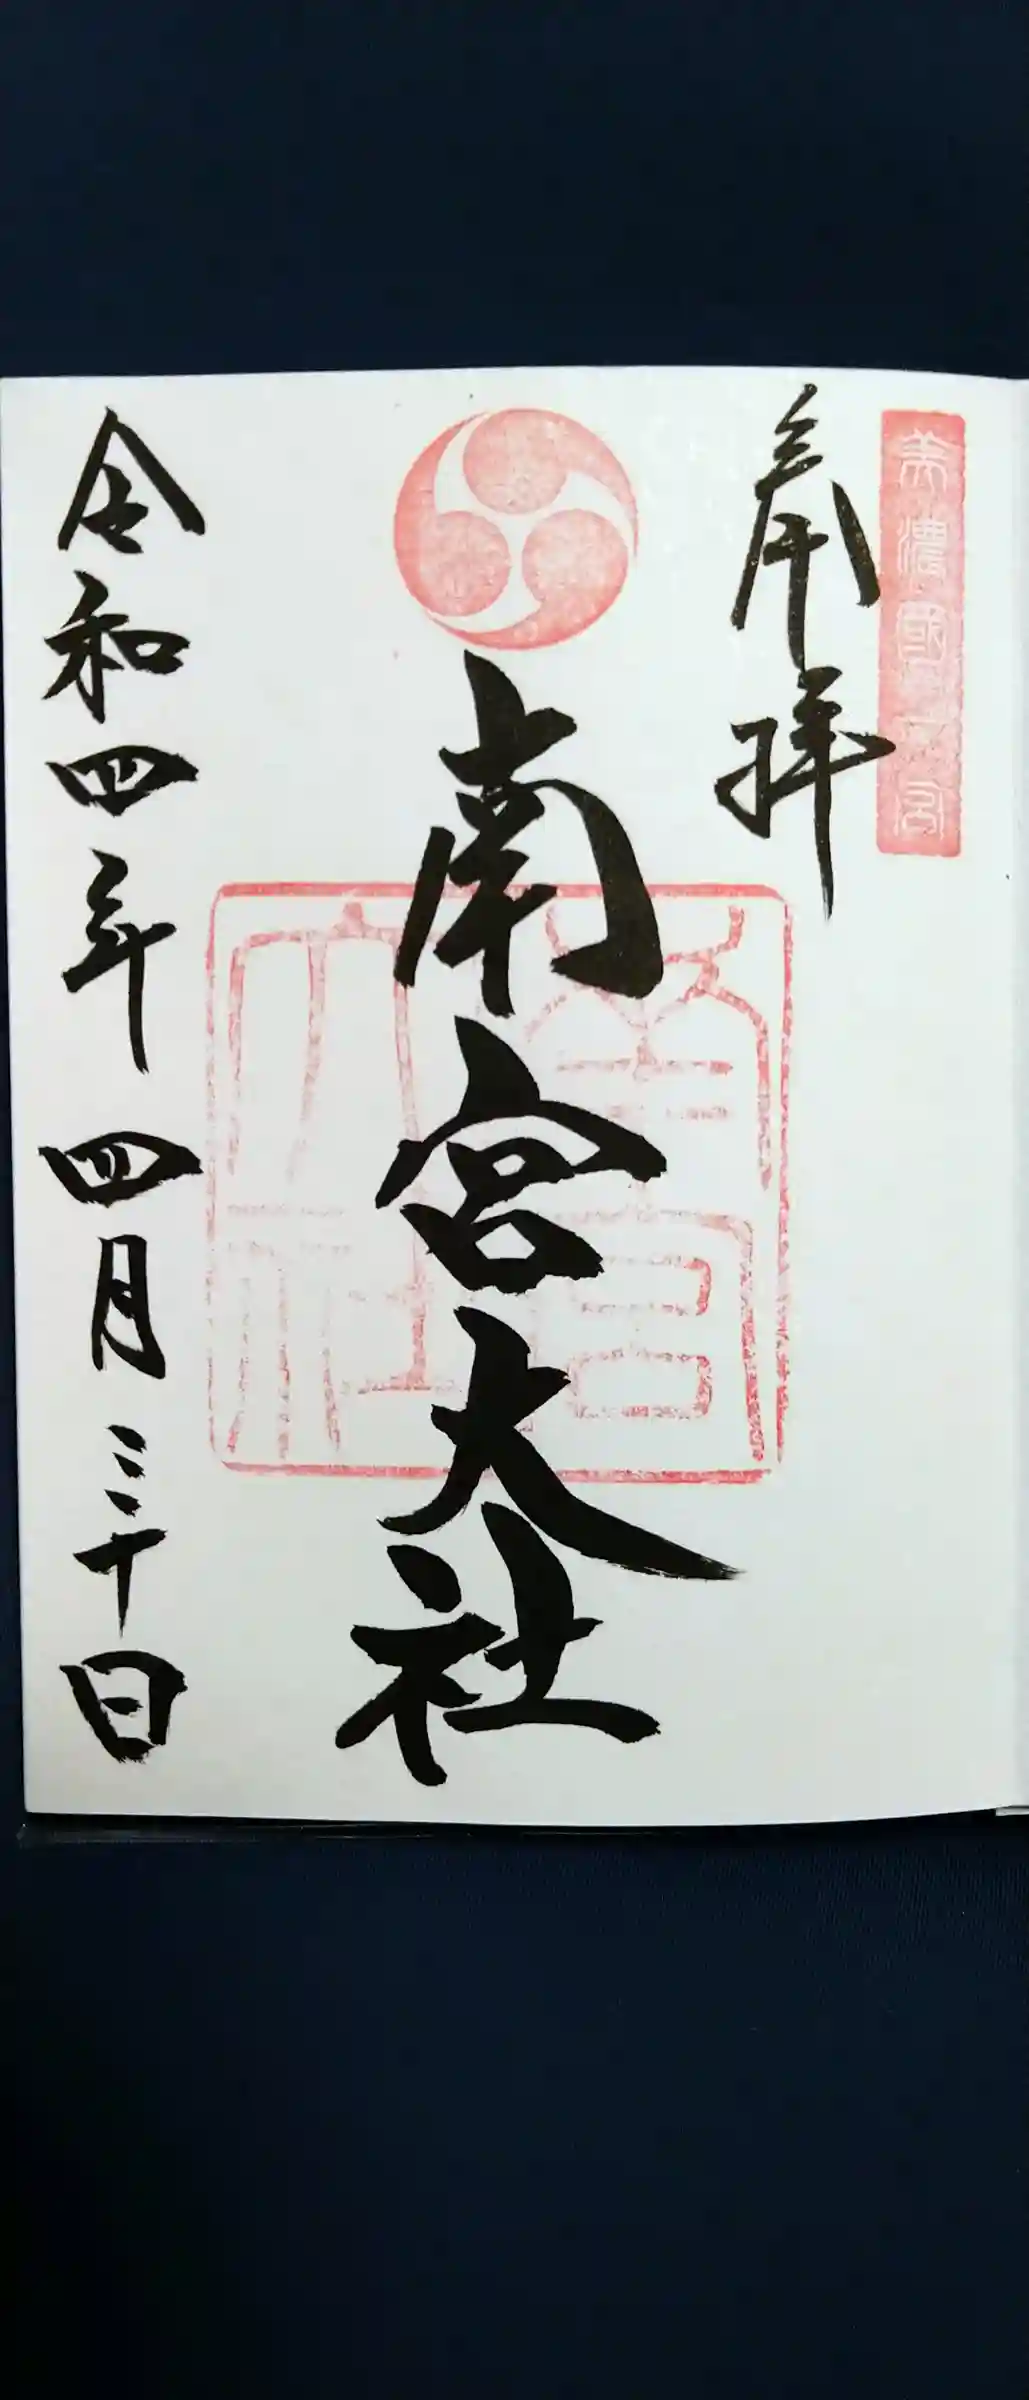 美濃國一宮
奉拝
南宮大社
南宮大社
令和四年四月三十日